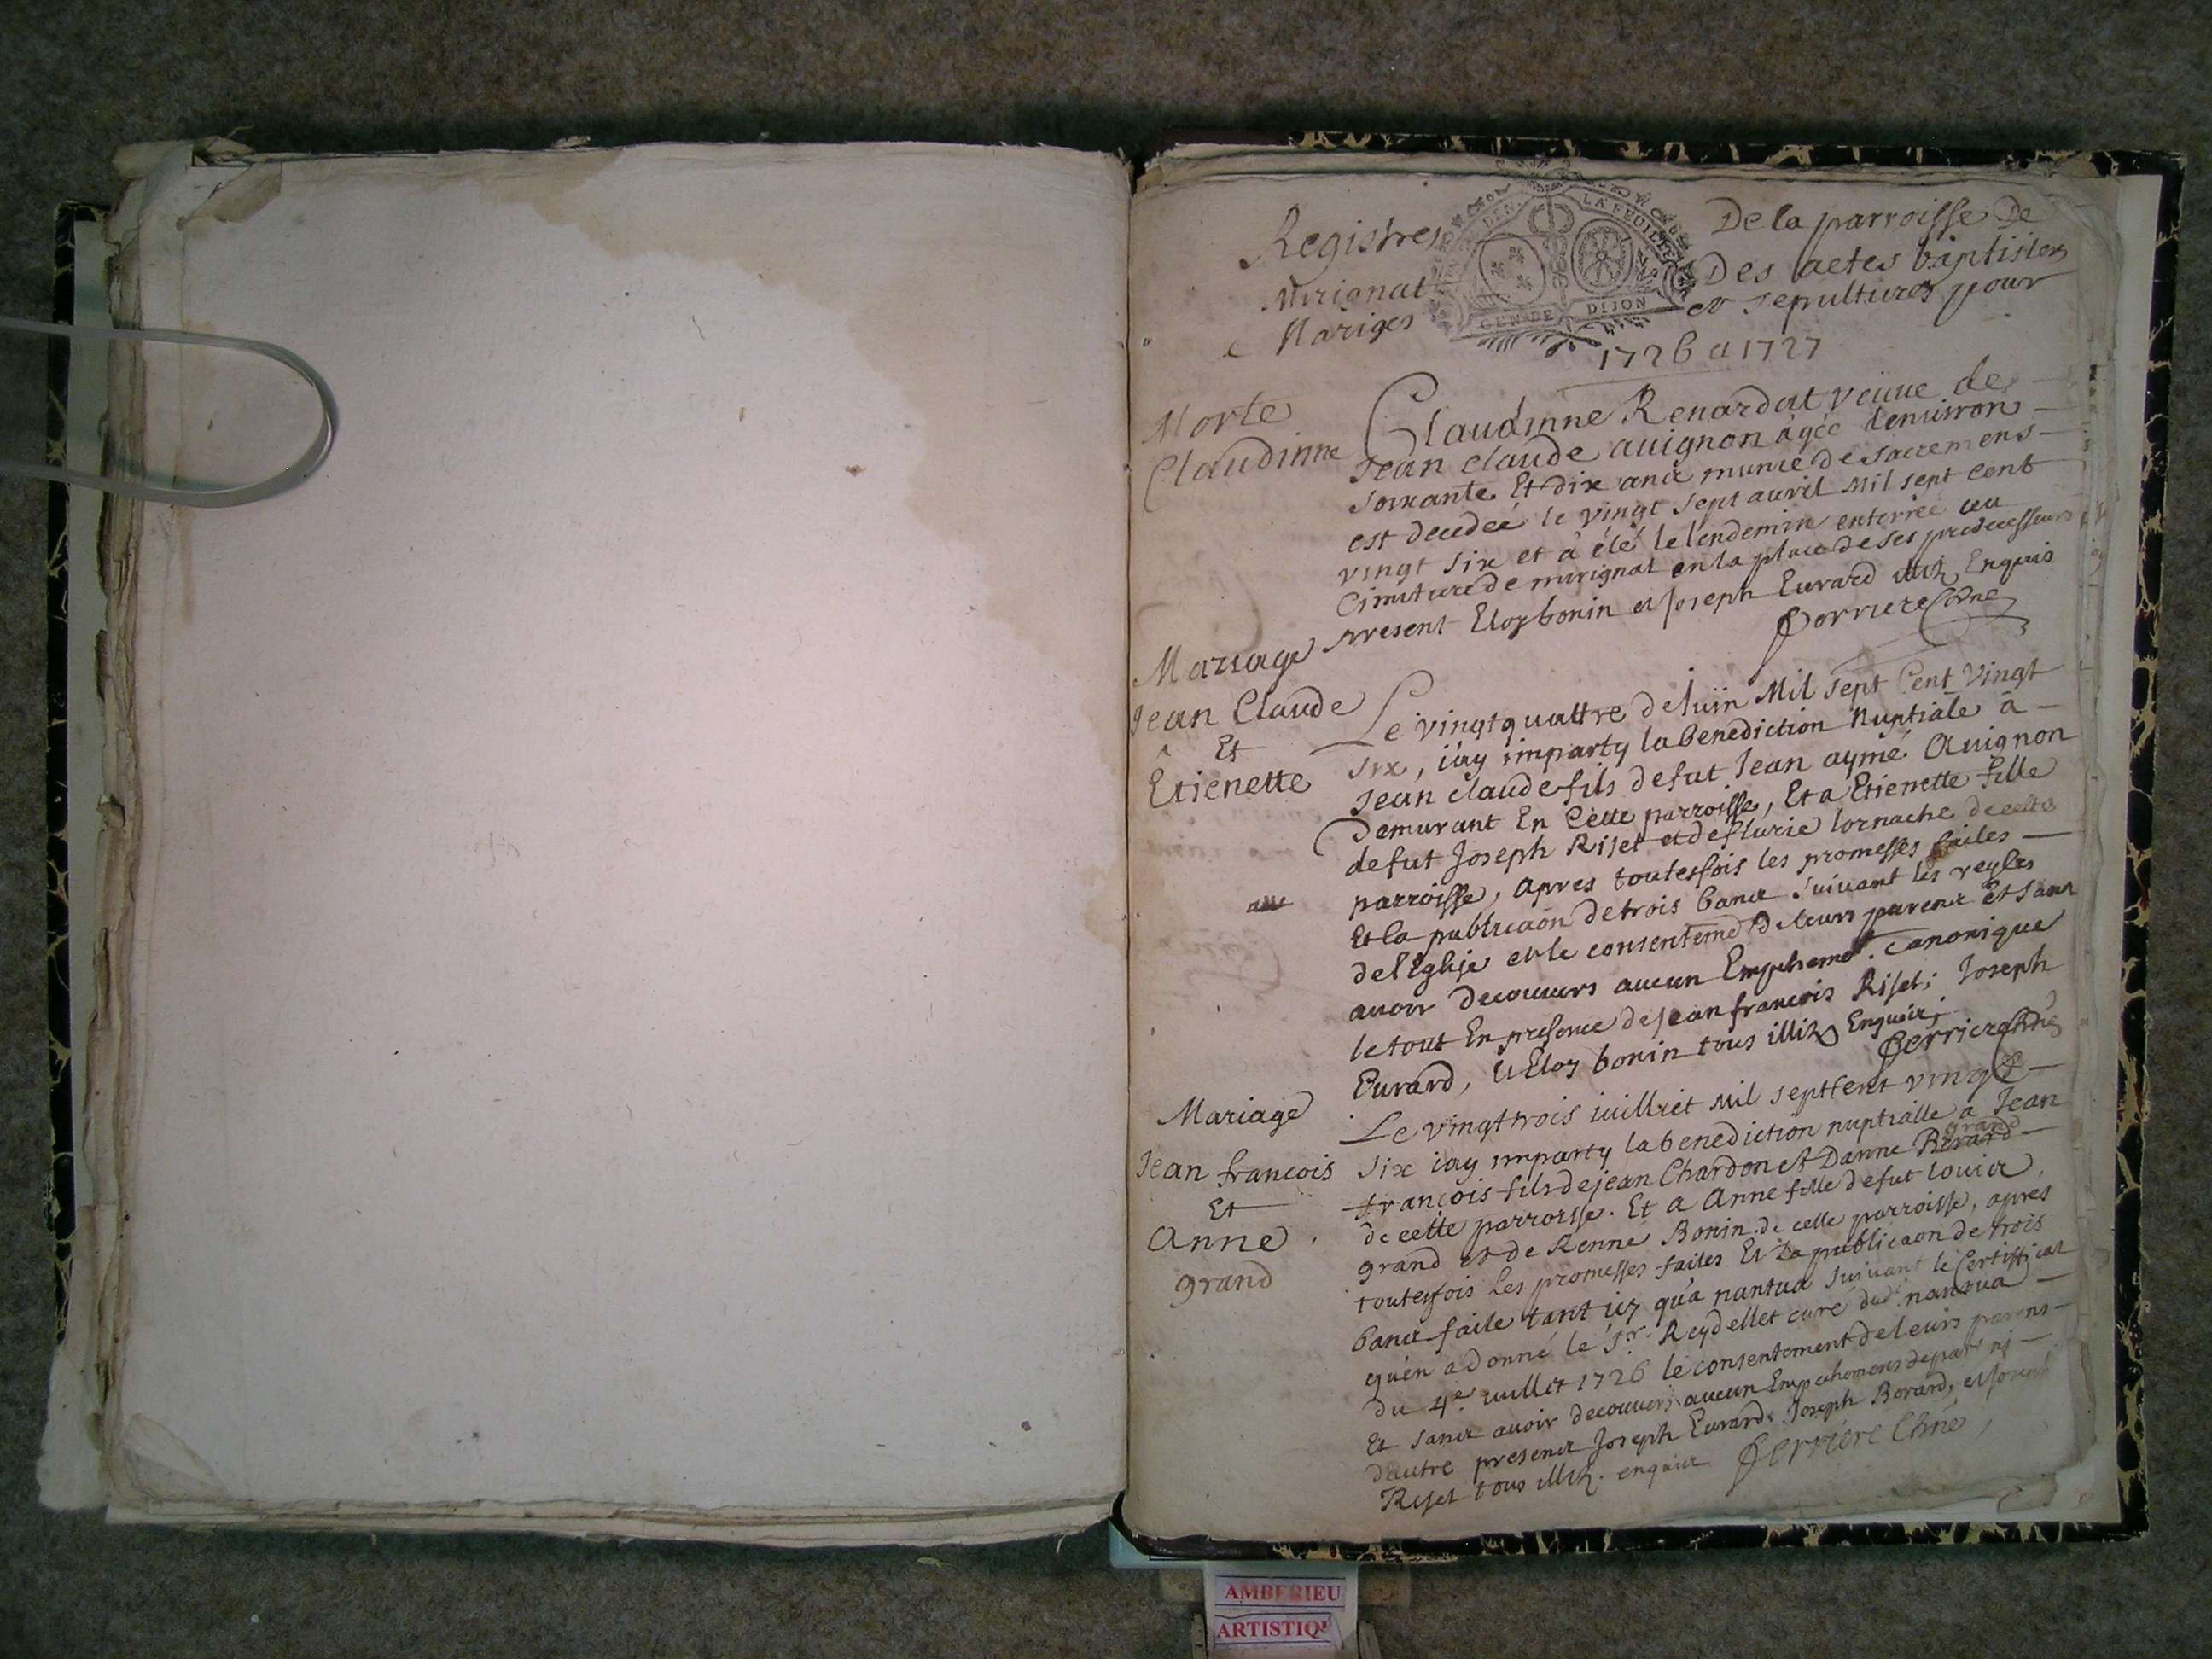 Registres De la parroisse De
Mirignat Des actes baptister
Mariges et sepultures pour
GEN DE DIJON
1726 et 1727
Morte
Claudinne
Claudinne Renardat veuve de
Jean claude auignon âgée denuiron
soixante Et dix ancz munie de sacremens
est decedeé le vingt sept auril Mil sept cent
vingt six et à été le lendemin enterrée au
Cimitiere de mirignat en la place de ses predecesseurs
present Eloy bonin et Joseph Eurard illitz Enquis
Perriere
Mariage
Jean Claude
Et
Etienette
Le vingtquattre de Iuïn Mil sept Cent Vingt
six, iay imparty la benediction Nuptiale â
Jean claude fils de fut Jean aymé Auignon
Demurant En Cette parroisse, Et a Etienette fille
de fut Joseph Riset et de flurie lornache de cette
parroisse, apres toutesfois les promesses faites
Et la publicaõn de trois bancz suiuant les regles
de l'Eglise et le consentemt de leurs parencz Et sancz
auoir decouuers aucun Empechemt. Canonique
le tout En presence de Jean francois Riset; Joseph
Eurard, Et Eloy bonin tous illitz Enquis;
Perriere
Mariage
Jean francois
Et
Anne
grand
Le vingt trois iuilliet Mil sept Cent vingt
six iay imparty la benediction nuptialle a Jean
grand
françois fils de jean Chardon et Danne
de cette parroisse. Et a Anne fille de fut Louis
grand et de Renné Bonin de cette parroisse, aprés
toutesfois les promesses faites Et la publicaon de trois
bancz faite tant icy qu'à nantua suiuant le Certifficat
qu'en a donné le Sr. Reydellet curé dud nantua
du 4e. iuillet 1726 le consentement de leurs parens
Et sancz auoir decouuers aucun Empechemens de part ni
dautre presencz Joseph Eurard, Joseph Borard, et Joseph
Riset tous illitz. enquis Perriere Chne
AMBERIEU
ARTISTIQU